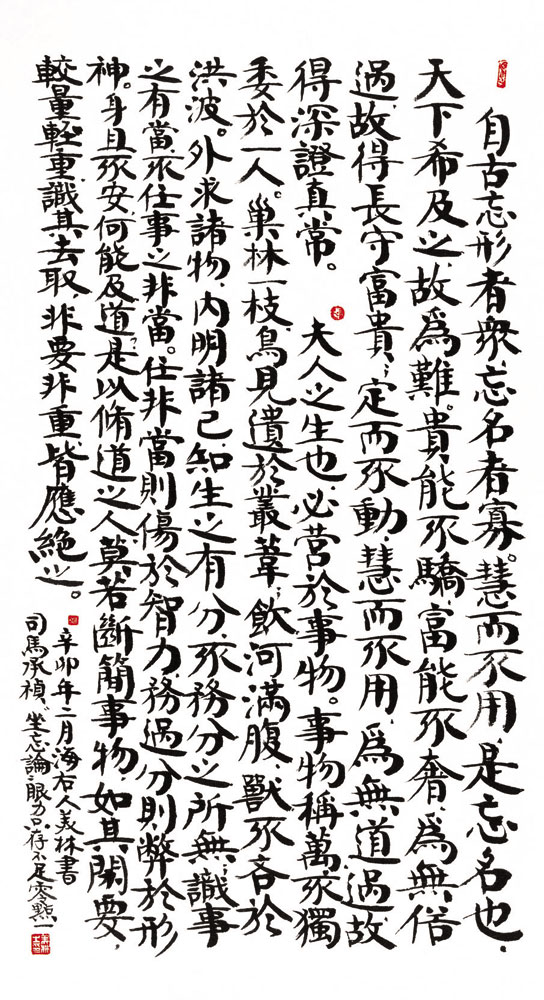 自古忘形者衆,忘名者寡。慧而不用,是忘名也.
天下希及之,故爲難。貴能不驕,富能不奢,爲無俗
過,故得長守富貴;定而不動,慧而不用,爲無道過,故
得深證真常。夫人之生也,必营於事物。事物稱萬,不獨
委於一人。巢林一枝,鳥見遺於叢葦;飲河滿腹,獸不吝於
洪波。外求諸物,内明諸己,知生之有分,不務分之所無;識事
之有當,不任事之非當。任非當則傷於智力,務過分則弊於形
神。身且不安,何能及道?是以脩道之人,莫若斷簡事物,如其閑要,
較量輕重,識其去取,非要非重,皆應絶之。
辛卯年二月海右人美林書
司馬承禎,坐忘論,眼力只存不足零點一